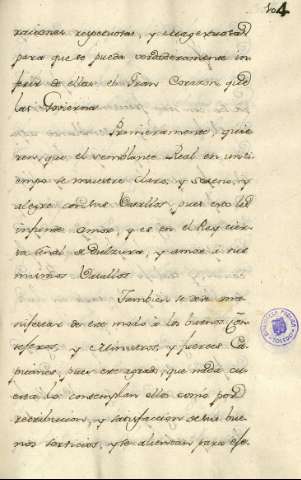 104
raciones respetuosas, y Magestuosas
para que se pueda verdaderamente in
ferir de ellas el Gran Corazon, que
las Govierna.
Primeramente, quie
ren, que el semblante Real en un ti
empo se muestre claro, y sereno, y
alegre con sus Vasallos, pues esto les
infunde amor, y es en el Rey cier
ta señal de dulzura, y amor a sus
mismos Vasallos.
Tambien se debe ma
nifestar de este modo à los buenos Con
sejeros, y Ministros, y fuertes Ca
pitanes, pues ese agrado, que nada cu
esta lo contemplan ellos como por
retribucion, y satisfaccion de sus bue
nos servicios, y se alientan para ese
BIBLIOTECA PUBLICA
TOLEDO